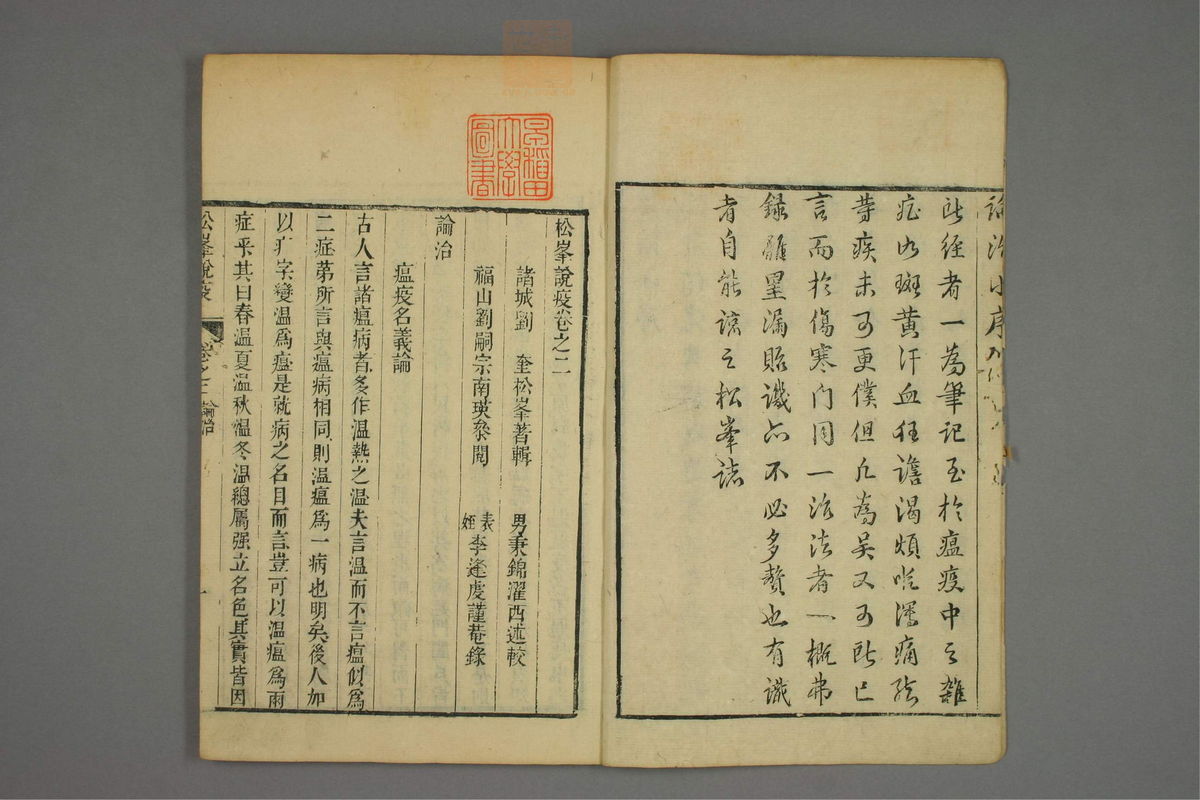 論治小序
於經者一為筆記至於瘟疫中之雜
症如斑黃汗血狂譫渴煩
等疾未可更僕但凡為吴又可所已
言而於傷寒門同一治法者一概弗
録雖罣漏貽譏亦不必多贅也有識
者自能諒之松峯誌
早稲田大學圖書
松峯說疫卷之二
諸城劉 奎松峯著輯 男秉錦濯西述較
福山劉嗣宗南瑛叅閱 表姪李逢虔謹菴錄
論治
瘟疫名義論
古人言諸瘟病者多作温熱之温夫言温而不言瘟似爲
二症苐所言與瘟病相同則温瘟爲一病也明矣後人加
以疒字變温爲瘟是就病之名目而言豈可以温瘟爲兩
症乎其曰春温夏温秋温冬温總屬强立名色其實皆因
松峯說疫 卷之二 論治 一